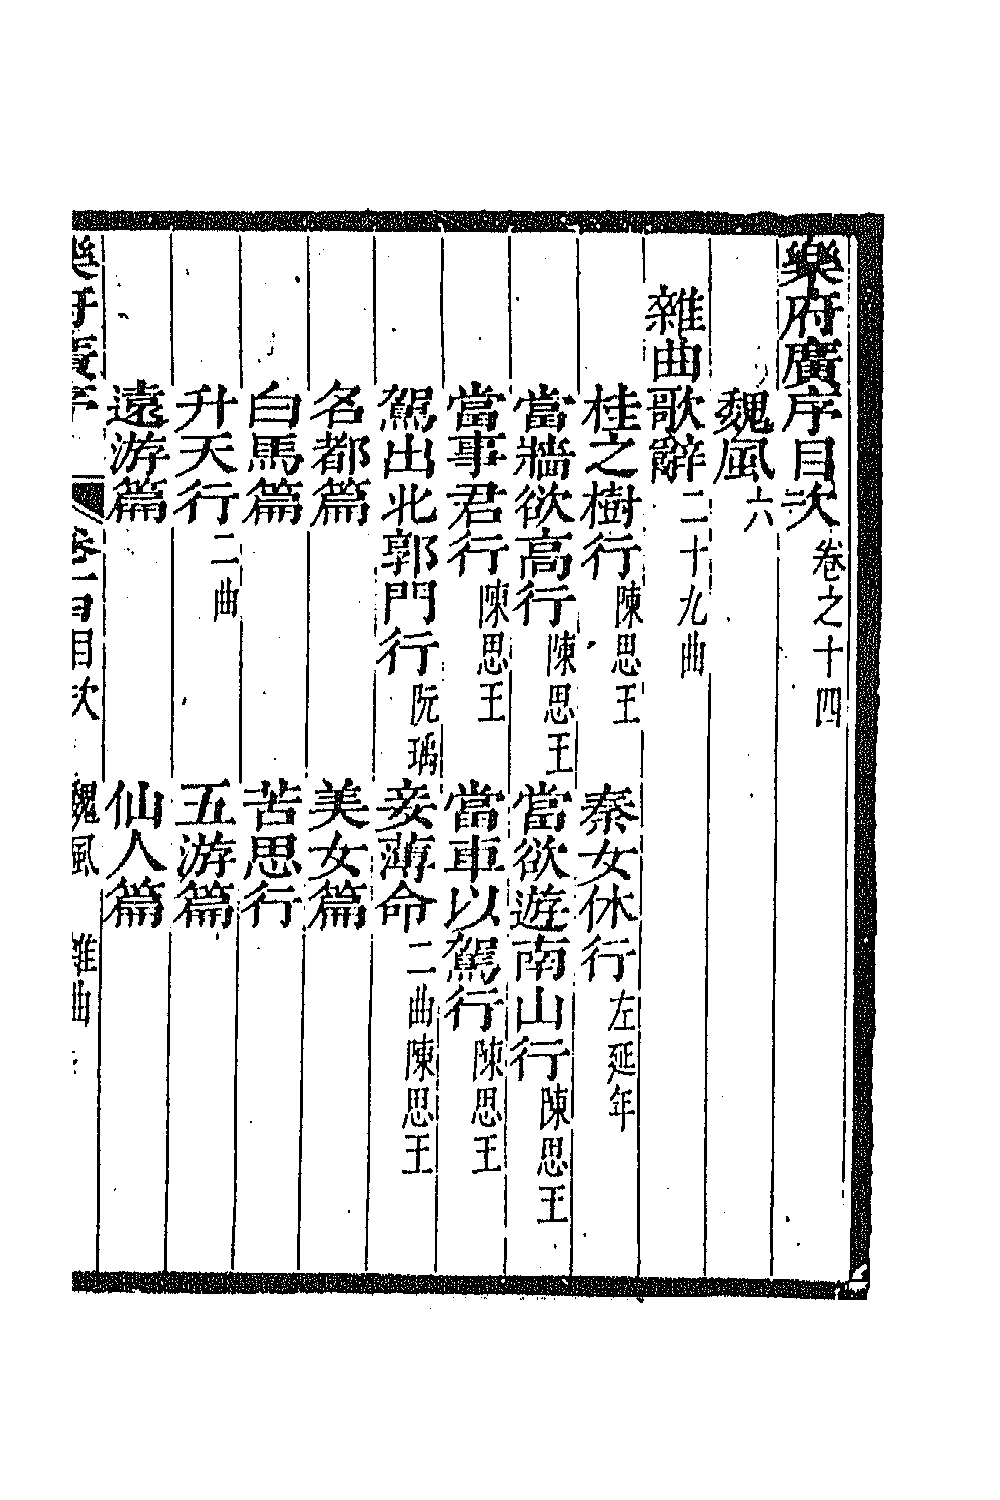 樂府廣序目次卷之十四
魏風六
雜曲歌辭二十九曲
桂之樹行陳思王 秦女休行左延年
當牆欲高行陳思王 當欲遊南山行陳思王
當事君行陳思王 當車以駕行陳思王
駕出北郭門行阮瑀 妾薄命二曲陳思王
名都篇 美女篇
白馬篇 苦思行
升天行二曲 五游篇
遠游篇 仙人篇
樂府廣序 卷十四目次 魏風 雜曲